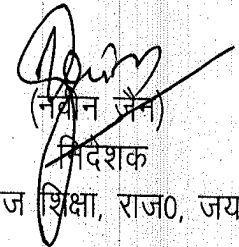 (नवीन जैन)
निदेशक
ज शिक्षा, राज0, जय